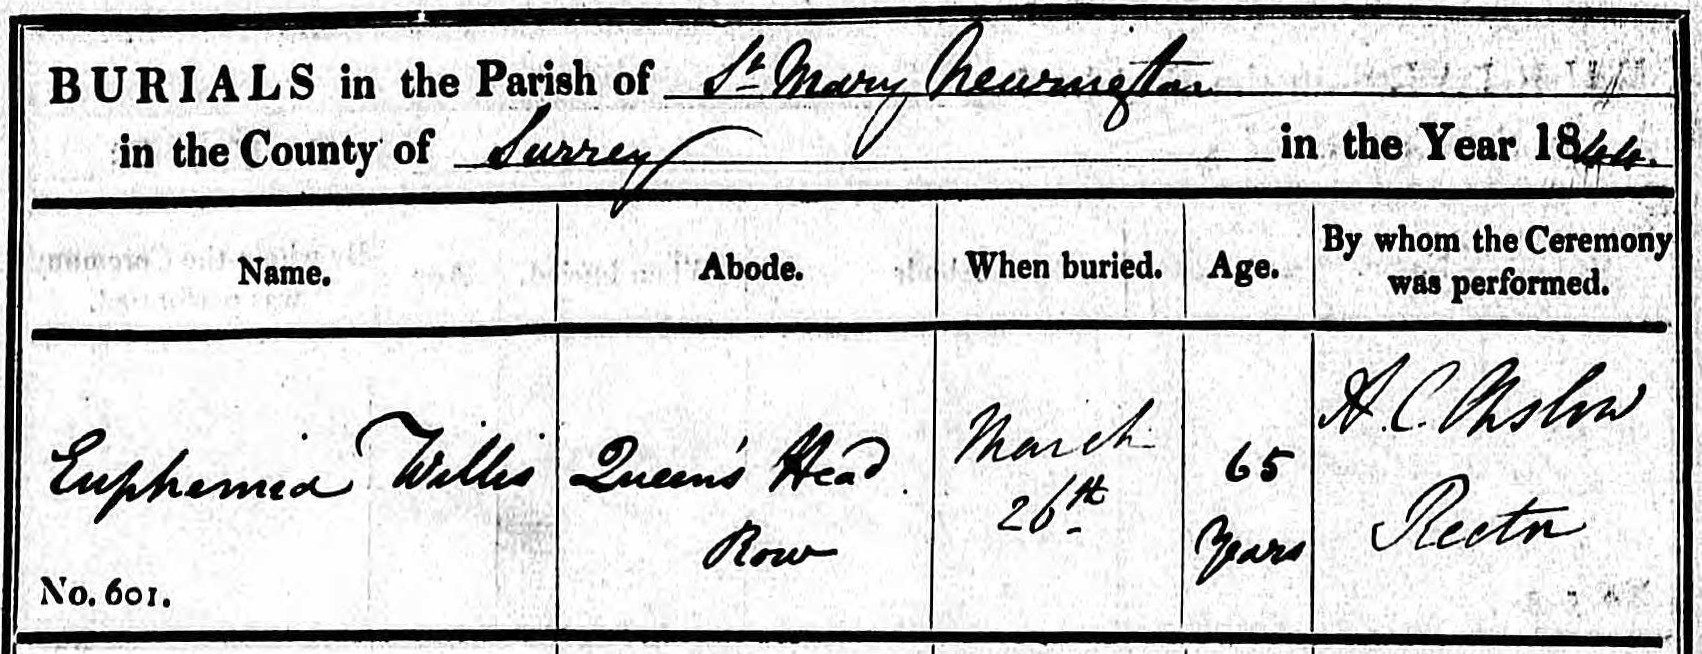 BURIALS in the Parish of St Mary Newington
in the County of Surrey in the Year 1844.
Name. Abode. When buried. Age. By whom the Ceremony
was performed.
Euphemia Willis Queen's Head Row March 26th 65 Years A. C. Onslow Rector
No. 601.